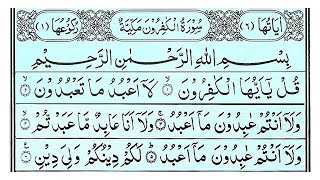 اٰيَاتُهَا (٦) سُوْرَةُ الْكٰفِرُوْنَ مَكِّيَّةٌ رُكُوْعُهَا (١)
بِسْمِ اللهِ الرَّحْمٰنِ الرَّحِيْمِ
قُلْ يٰٓاَيُّهَا الْكٰفِرُوْنَ ۝١ لَآ اَعْبُدُ مَا تَعْبُدُوْنَ ۝٢
وَلَآ اَنْتُمْ عٰبِدُوْنَ مَآ اَعْبُدُ ۝٣ وَلَآ اَنَا عَابِدٌ مَّا عَبَدْتُّمْ ۝٤
وَلَآ اَنْتُمْ عٰبِدُوْنَ مَآ اَعْبُدُ ۝٥ لَكُمْ دِيْنُكُمْ وَلِيَ دِيْنِ ۝٦